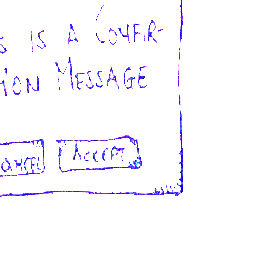 S IS A CONFIR-
ION MESSAGE
ANCEL ACCEPT